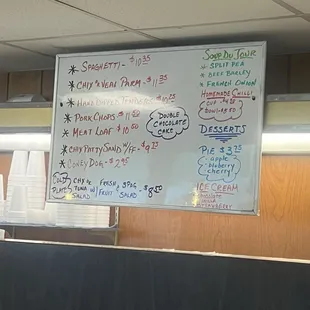 * SPAGHETTI - $10.35
* CHIX & VEAL PARM. $11.35
* HAND DIPPED TENDERS $10.25
* PORK CHOPS $11.50
* MEAT LOAF $10.50
* CHIX PATTY SAND W/FF $9.25
* CONEY DOG - $2.95
COLD PLATE
CHIX TUNA SALAD
FRESH FRUIT
W/
SALAD
$8.50
DOUBLE
CHOCOLATE
CAKE
SOUP DU JOUR
* SPLIT PEA
* BEEF BARLEY
* FRENCH ONION
HOMEMADE CHILI
CUP
BOWL
DESSERTS
PIE $3.75
apple
blueberry
cherry
ICE CREAM